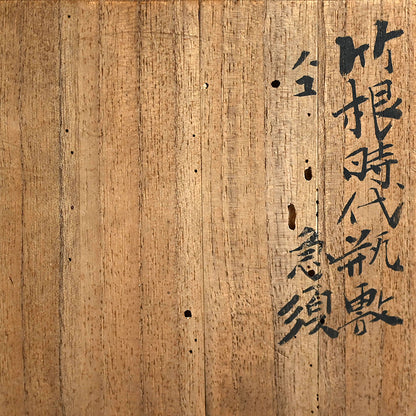 竹根時代瓶敷
仝 急須